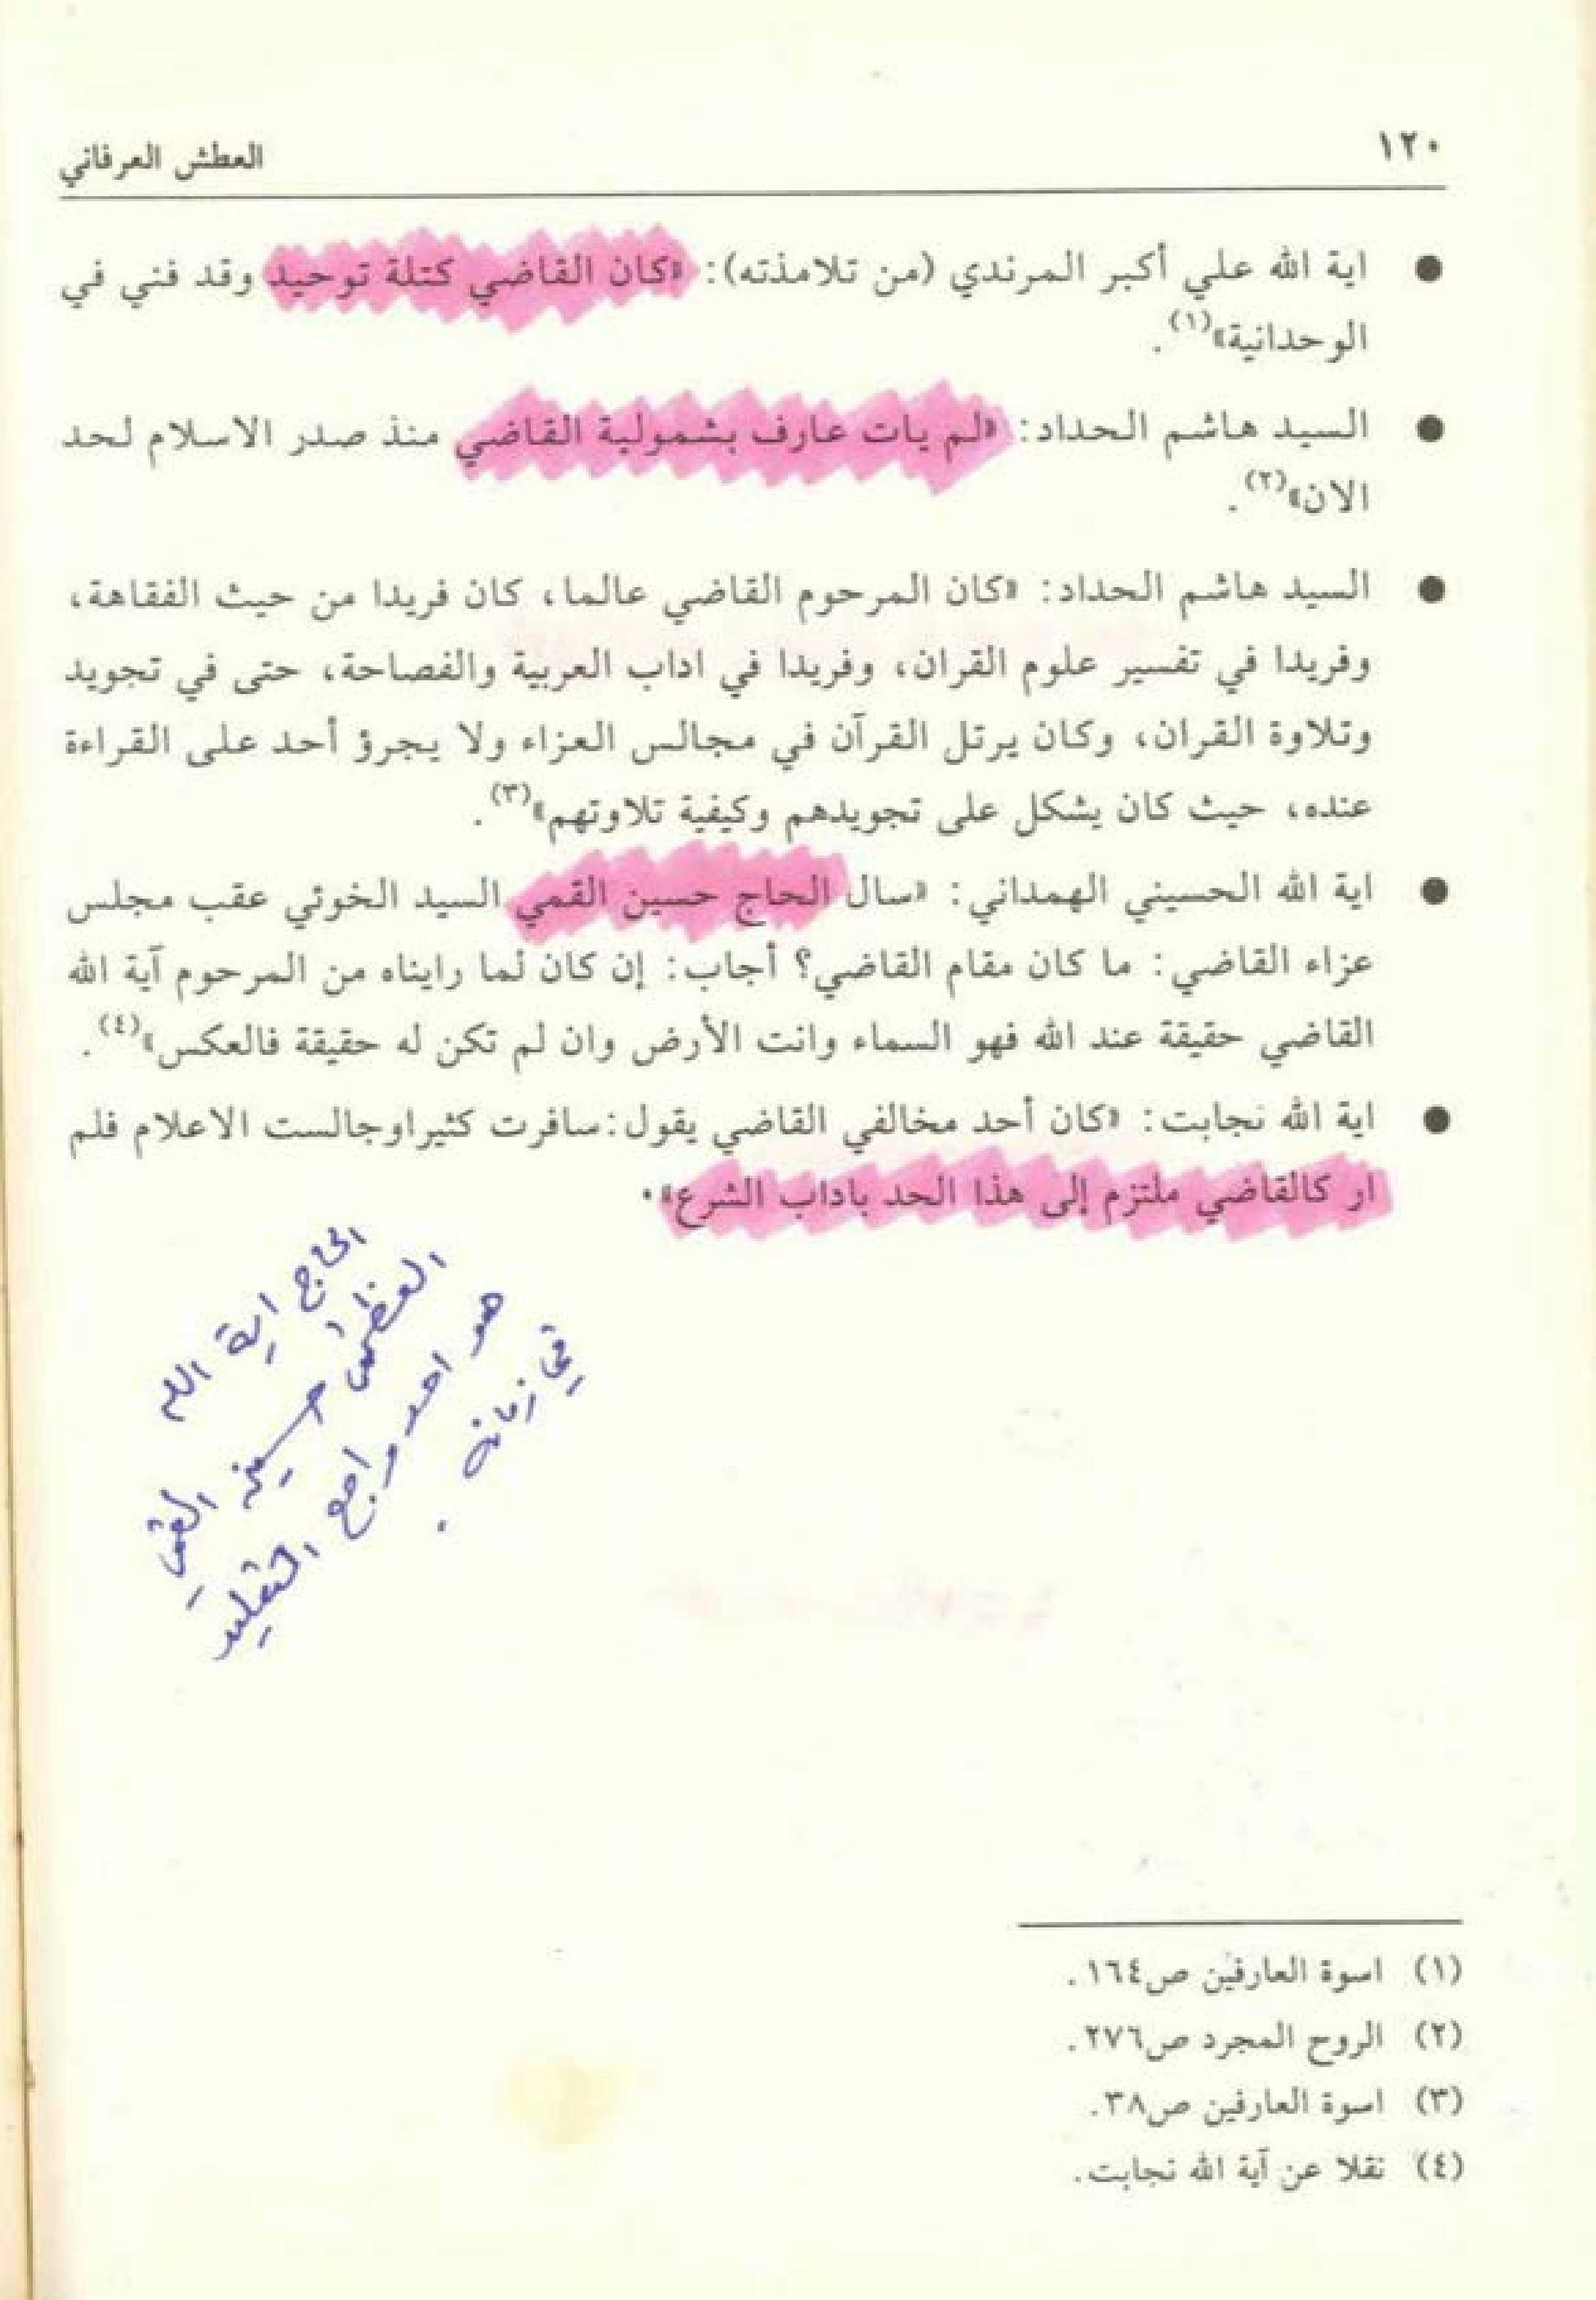 ١٢٠
العطش العرفاني
● اية الله علي أكبر المرندي (من تلامذته): «كان القاضي كتلة توحيد وقد فني في
الوحدانية»(١).
● السيد هاشم الحداد: «لم يات عارف بشمولية القاضي منذ صدر الاسلام لحد
الان»(٢).
● السيد هاشم الحداد: «كان المرحوم القاضي عالما، كان فريدا من حيث الفقاهة،
وفريدا في تفسير علوم القران، وفريدا في اداب العربية والفصاحة، حتى في تجويد
وتلاوة القران، وكان يرتل القرآن في مجالس العزاء ولا يجرؤ أحد على القراءة
عنده، حيث كان يشكل على تجويدهم وكيفية تلاوتهم»(٣).
● اية الله الحسيني الهمداني: «سال الحاج حسين القمي السيد الخوئي عقب مجلس
عزاء القاضي: ما كان مقام القاضي؟ أجاب: إن كان لما رايناه من المرحوم آية الله
القاضي حقيقة عند الله فهو السماء وانت الأرض وان لم تكن له حقيقة فالعكس»(٤).
● اية الله نجابت: «كان أحد مخالفي القاضي يقول:سافرت كثيراوجالست الاعلام فلم
ار كالقاضي ملتزم إلى هذا الحد باداب الشرع».
الحاج اية الله
العظمى حسين القمي
هو احد مراجع التقليد
في زمانه .
(١) اسوة العارفين ص١٦٤.
(٢) الروح المجرد ص٢٧٦.
(٣) اسوة العارفين ص٣٨.
(٤) نقلا عن آية الله نجابت.